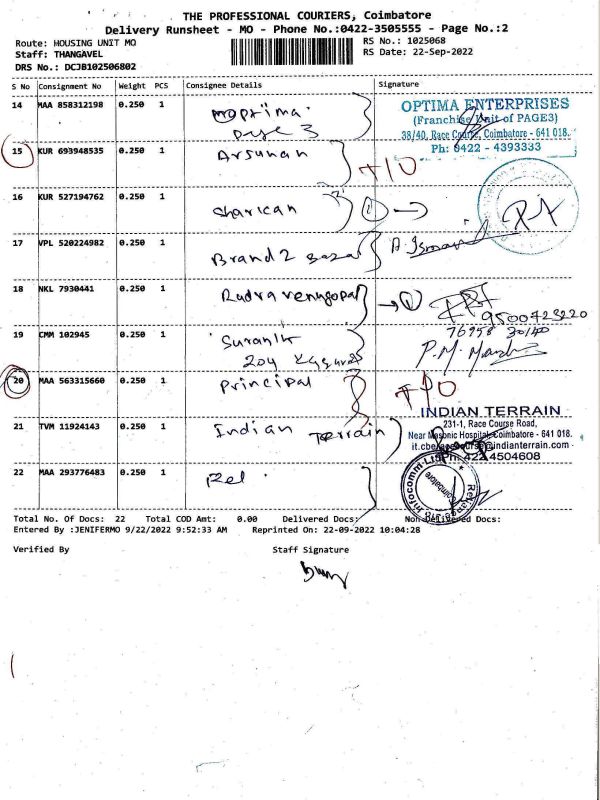 THE PROFESSIONAL COURIERS, Coimbatore
Delivery Runsheet - MO - Phone No.:0422-3505555 - Page No.:2
Route: HOUSING UNIT MO
RS No.: 1025068
Staff: THANGAVEL
RS Date: 22-Sep-2022
DRS No.: DCJB102506802
S No Consignment No Weight PCS Consignee Details Signature
14 MAA 858312198 0.250 1
OPTIMA ENTERPRISES
(Franchise Unit of PAGE3)
38/40, Race Course, Coimbatore - 641 018.
Ph: 0422 - 4393333
15 KUR 693948535 0.250 1
16 KUR 527194762 0.250 1 Sharican
17 VPL 520224982 0.250 1 Brand 2
18 NKL 7930441 0.250 1 Rudra venugopal
9500723220
19 CMM 102945 0.250 1
20 MAA 563315660 0.250 1 Principal
21 TVM 11924143 0.250 1 Indian Terrain
INDIAN TERRAIN
231-1, Race Course Road,
Near Masonic Hospital, Coimbatore - 641 018.
22 MAA 293776483 0.250 1 Rel
Total No. Of Docs: 22 Total COD Amt: 0.00 Delivered Docs: Non-Delivered Docs:
Entered By :JENIFERMO 9/22/2022 9:52:33 AM Reprinted On: 22-09-2022 10:04:28
Verified By Staff Signature